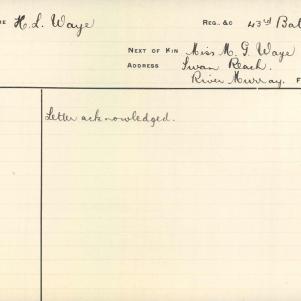 H. L. Waye REG., &C 43rd
NEXT OF KIN Miss M. G. Waye
ADDRESS Swan Reach.
River Murray.
Letter acknowledged.